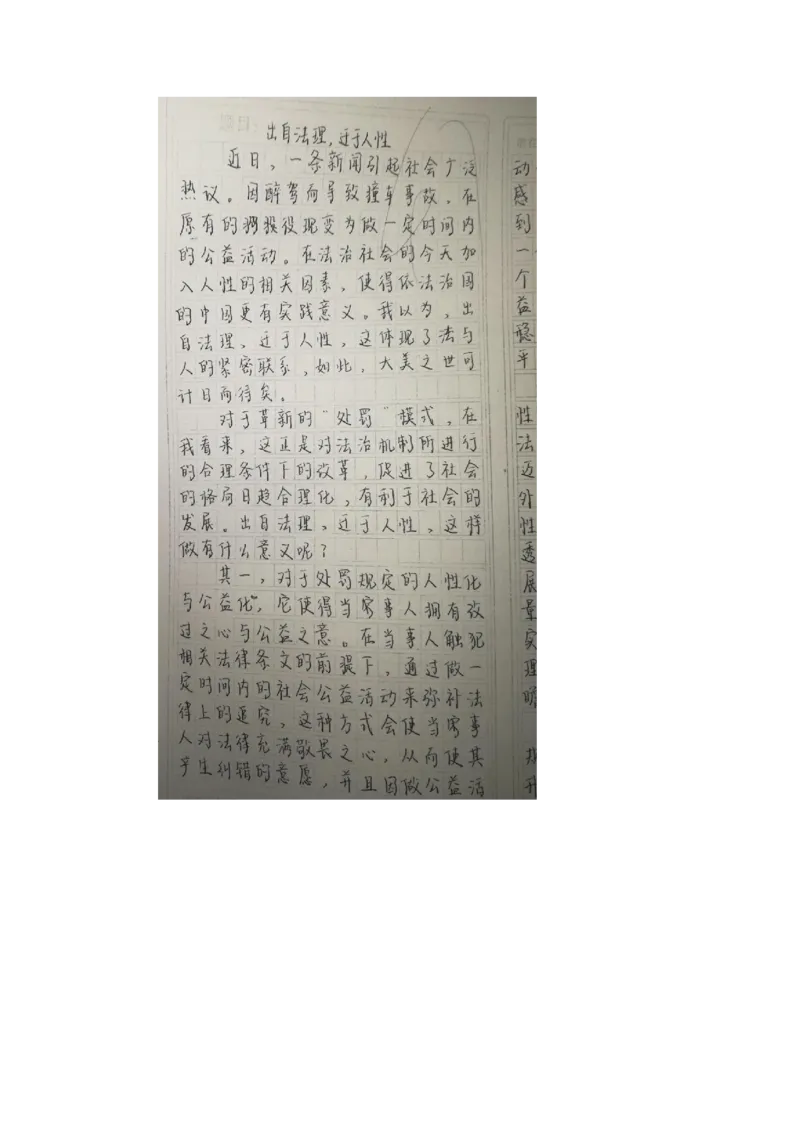 出自法理，迂于人性
近日，一条新闻引起社会广泛
热议。因醉驾而导致撞车事故，在
原有的拘役现变为做一定时间内
的公益活动。在法治社会的今天加
入人性的相关因素，使得依法治国
的中国更有实践意义。我以为，出
自法理，迂于人性，这体现了法与
人的紧密联系，如此，大美之世可
计日而待矣。
对于革新的“处罚”模式，在
我看来，这正是对法治机制所进行
的合理条件下的改革，促进了社会
的格局日趋合理化，有利于社会的
发展。出自法理，迂于人性，这样
做有什么意义呢？
其一，对于处罚规定的人性化
与公益化，它使得当事人拥有改
过之心与公益之意。在当事人触犯
相关法律条文的前提下，通过做一
定时间内的社会公益活动来弥补法
律上的追究，这种方式会使当事
人对法律充满敬畏之心，从而使其
产生纠错的意愿，并且因做公益活
动
感
到
一
个
益
稳
平
性
法
迈
外
性
透
展
量
实
理
瞻
升